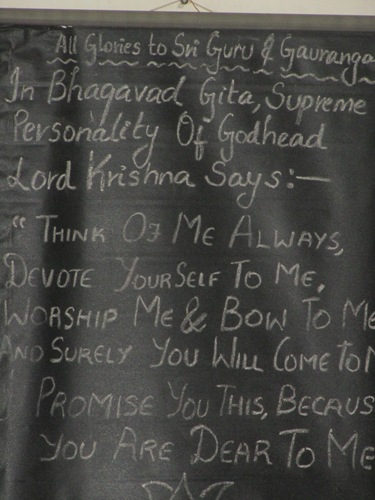 All Glories to Sri Guru & Gauranga
In Bhagavad Gita, Supreme
Personality Of Godhead
Lord Krishna Says:—
“ THINK OF ME ALWAYS,
DEVOTE YOURSELF TO ME,
WORSHIP ME & BOW TO ME
AND SURELY YOU WILL COME TO M
PROMISE YOU THIS, BECAUS
YOU ARE DEAR TO ME